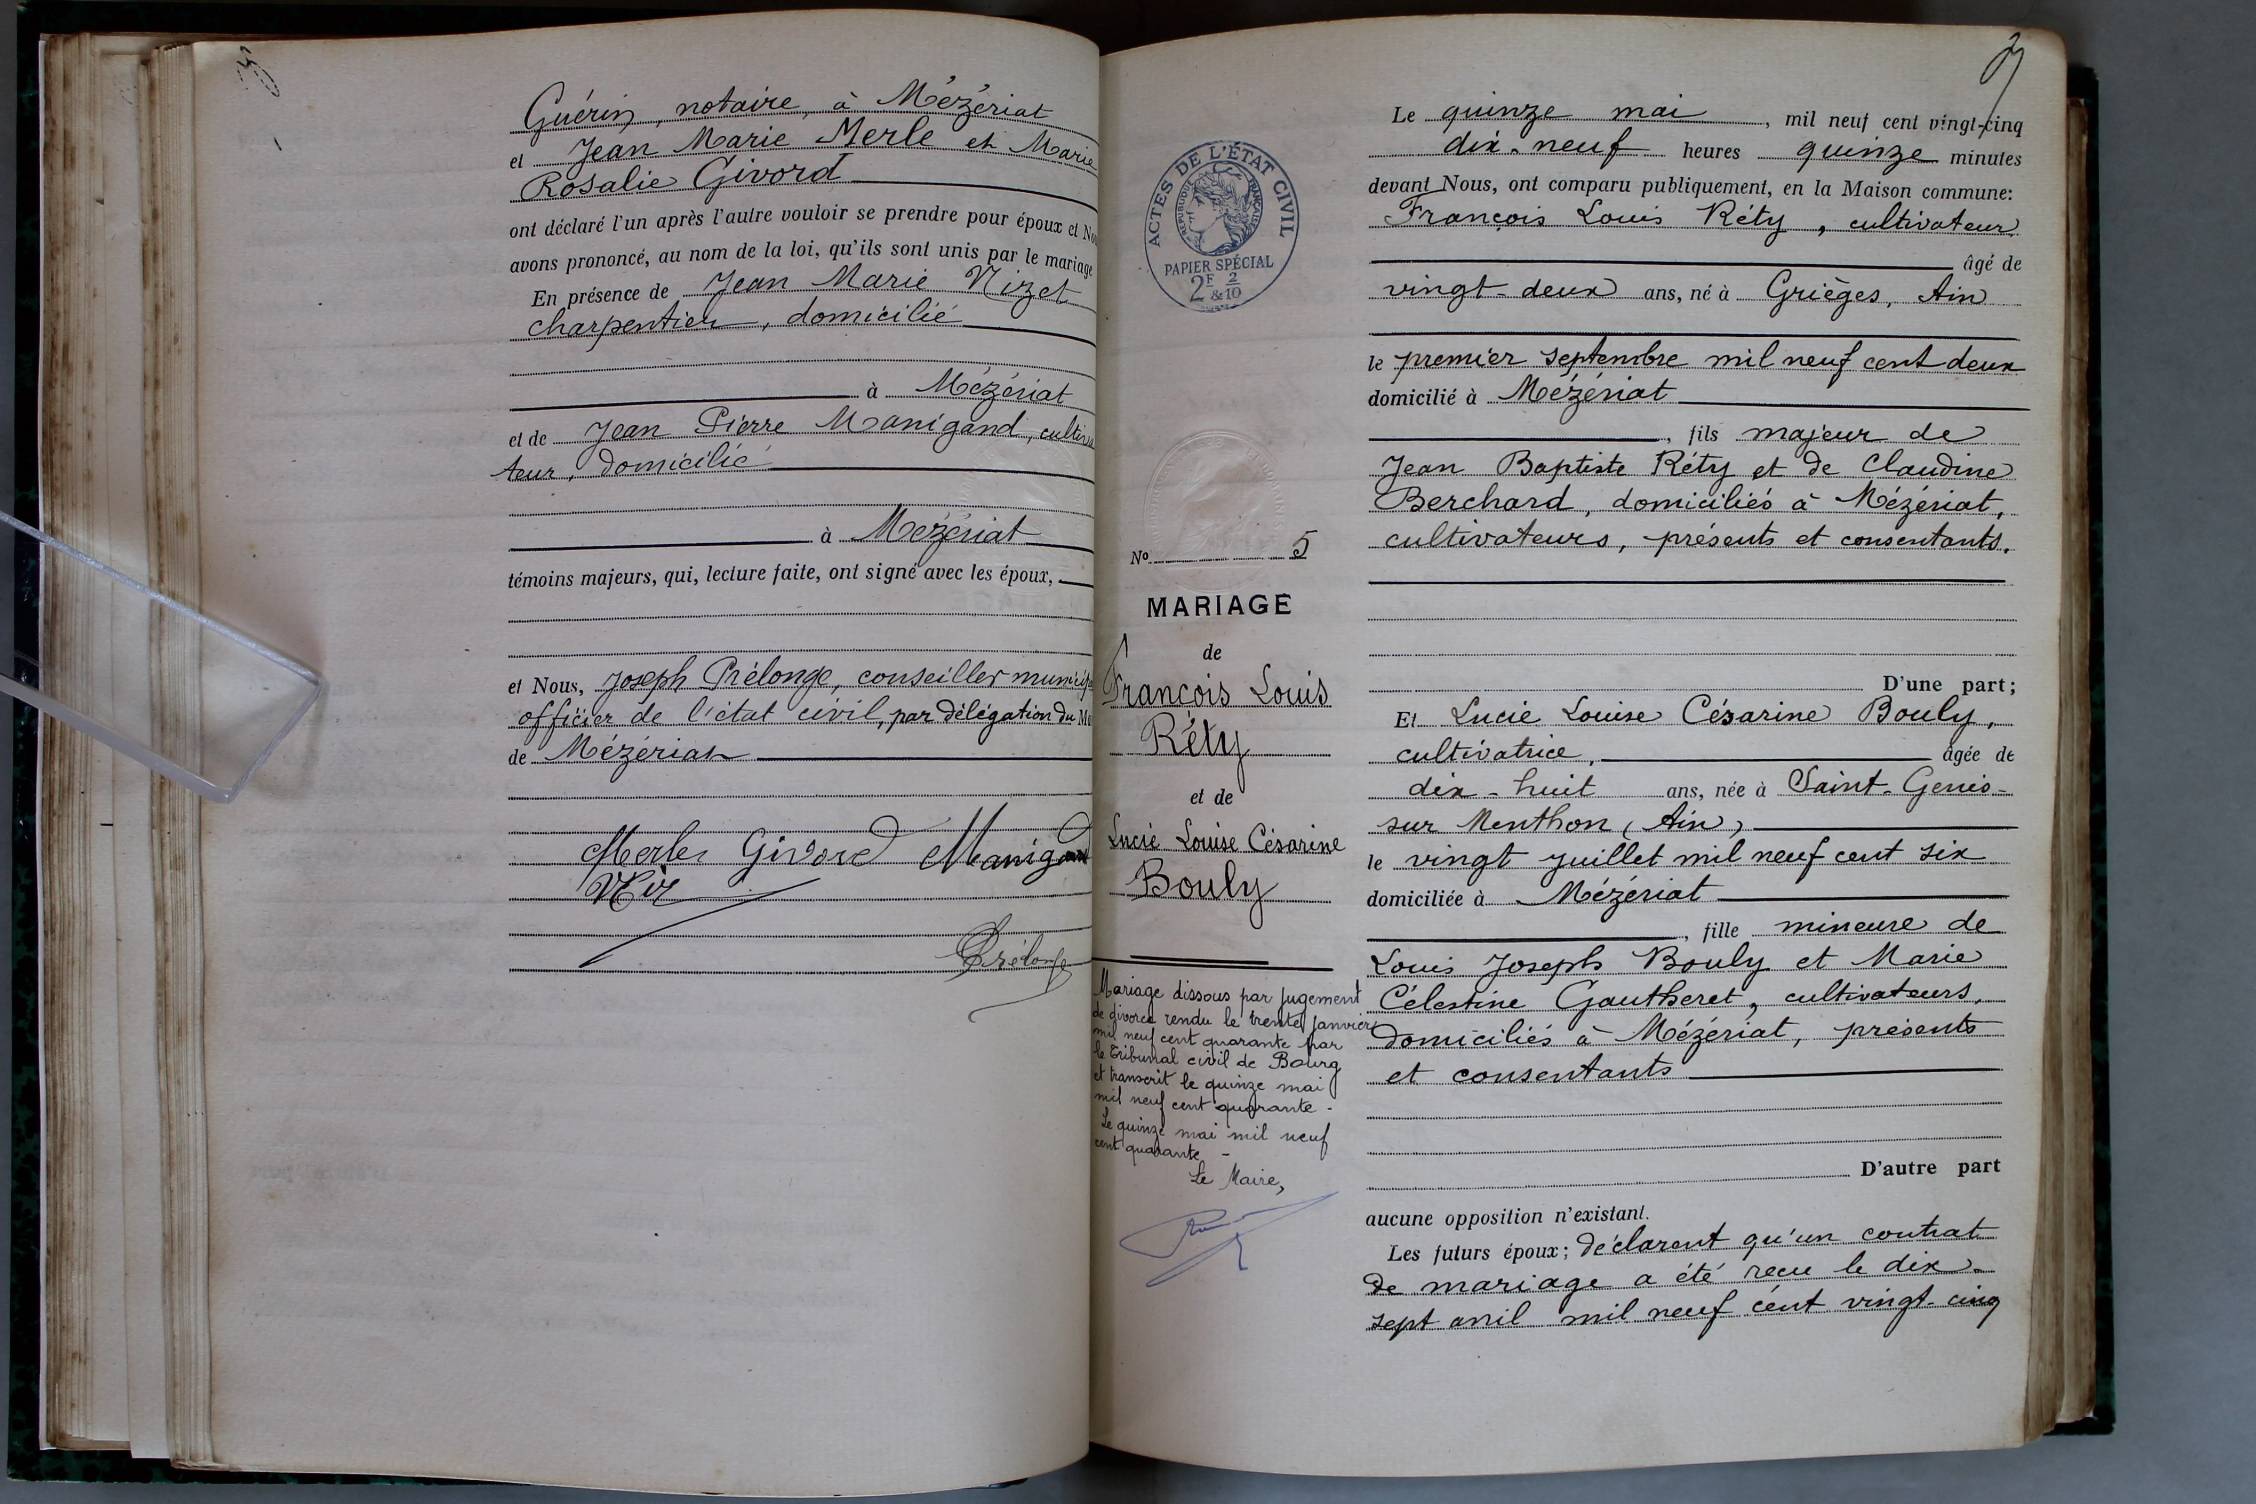 Guérin, notaire, à Mézériat
et Jean Marie Merle et Marie
Rosalie Givord
ont déclaré l'un après l'autre vouloir se prendre pour époux et No
avons prononcé, au nom de la loi, qu'ils sont unis par le mariage
En présence de Jean Marie Nizet
charpentier, domicilié
à Mézériat
et de Jean Pierre Manigand, cultiva
teur, domicilié
à Mézériat
témoins majeurs, qui, lecture faite, ont signé avec les époux,
et Nous, Joseph Prélonge, conseiller municip
officier de l'état civil, par délégation du Ma
de Mézériat
Merle Givord Manigand
Prélonge
ACTES DE L'ÉTAT CIVIL
RÉPUBLIQUE FRANÇAISE
PAPIER SPÉCIAL
2F 2
&10
No 5
MARIAGE
de
François Louis
Réty
et de
Lucie Louise Césarine
Bouly
Mariage dissous par jugement
de divorce rendu le trente janvier
mil neuf cent quarante par
le Tribunal civil de Bourg
et transcrit le quinze mai
mil neuf cent quarante -
Le quinze mai mil neuf
cent quarante -
Le Maire,
Le quinze mai, mil neuf cent vingt-cinq
dix-neuf heures quinze minutes
devant Nous, ont comparu publiquement, en la Maison commune:
François Louis Réty, cultivateur
âgé de
vingt-deux ans, né à Grièges, Ain
le premier septembre mil neuf cent deux
domicilié à Mézériat
, fils majeur de
Jean Baptiste Réty et de Claudine
Berchard, domiciliés à Mézériat,
cultivateurs, présents et consentants.
D'une part;
Et Lucie Louise Césarine Bouly,
cultivatrice, âgée de
dix-huit ans, née à Saint-Genis-
sur Menthon (Ain)
le vingt juillet mil neuf cent six
domiciliée à Mézériat
, fille mineure de
Louis Joseph Bouly et Marie
Célestine Gautheret, cultivateurs,
domiciliés à Mézériat, présents
et consentants
D'autre part
aucune opposition n'existant.
Les futurs époux; déclarent qu'un contrat
de mariage a été reçu le dix-
sept avril mil neuf cent vingt-cinq